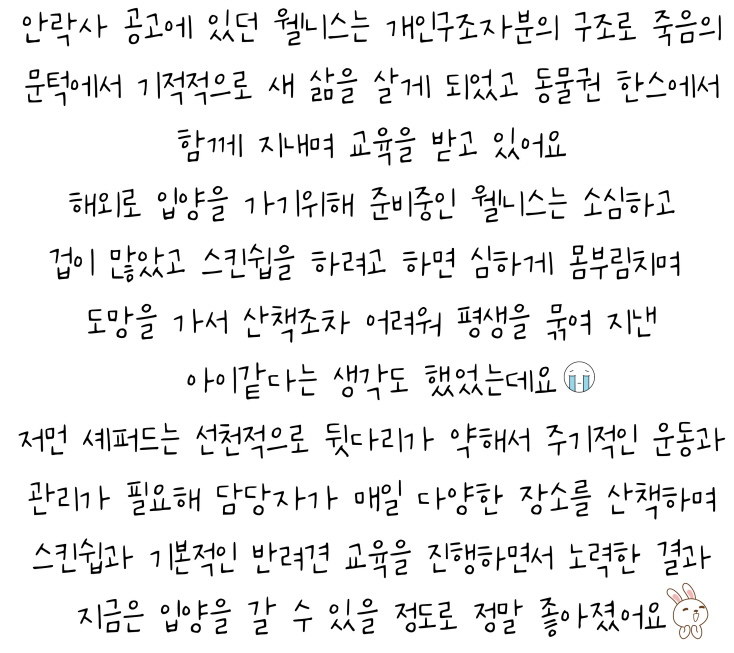 안락사 공고에 있던 웰니스는 개인구조자분의 구조로 죽음의
문턱에서 기적적으로 새 삶을 살게 되었고 동물권 한스에서
함께 지내며 교육을 받고 있어요
해외로 입양을 가기위해 준비중인 웰니스는 소심하고
겁이 많았고 스킨쉽을 하려고 하면 심하게 몸부림치며
도망을 가서 산책조차 어려워 평생을 묶여 지낸
아이같다는 생각도 했었는데요😭
저먼 셰퍼드는 선천적으로 뒷다리가 약해서 주기적인 운동과
관리가 필요해 담당자가 매일 다양한 장소를 산책하며
스킨쉽과 기본적인 반려견 교육을 진행하면서 노력한 결과
지금은 입양을 갈 수 있을 정도로 정말 좋아졌어요